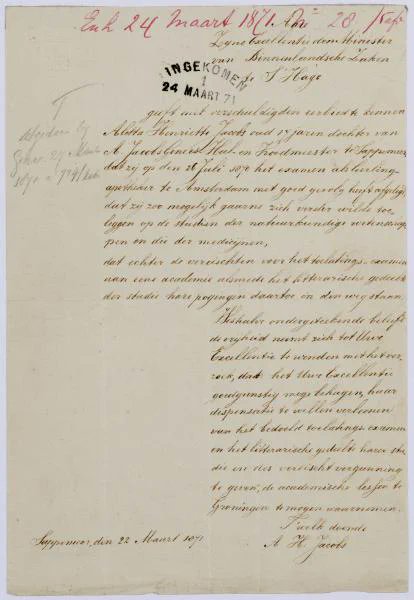 Exh 24 Maart 1871. No 28
Zyne Excellentie den Minister
van Binnenlandsche Zaken
te 's Hage
INGEKOMEN
24 MAART 71
geeft met verschuldigden eerbied te kennen
Aletta Henriette Jacobs oud 17 jaren dochter van
A. Jacobs Genees Heel- en Vroedmeester te Sappemeer,
dat zij op den 26 Juli 1870 het examen als leerling-
apotheker te Amsterdam met goed gevolg heeft afgelegd,
dat zij zoo mogelijk gaarne zich verder wilde toe-
leggen op de studien der natuurkundige wetenschap-
pen en die der medicijnen,
dat echter de vereischten voor het toelatings-examen
van eene academie alsmede het litterarische gedeelte
der studie hare pogingen daartoe in den weg staan,
Weshalve ondergeteekende beleefd
de vrijheid neemt zich tot Uwe
Excellentie te wenden met het ver-
zoek, dat het Uwe Excellentie
goedgunstig moge behagen, haar
dispensatie te willen verleenen
van het bedoeld toelatings-examen
en het litterarische gedeelte harer stu-
die en des vereischt vergunning
te geven, de academische lessen te
Groningen te mogen waarnemen.
't welk doende
A. H. Jacobs
Sappemeer, den 22 Maart 1871